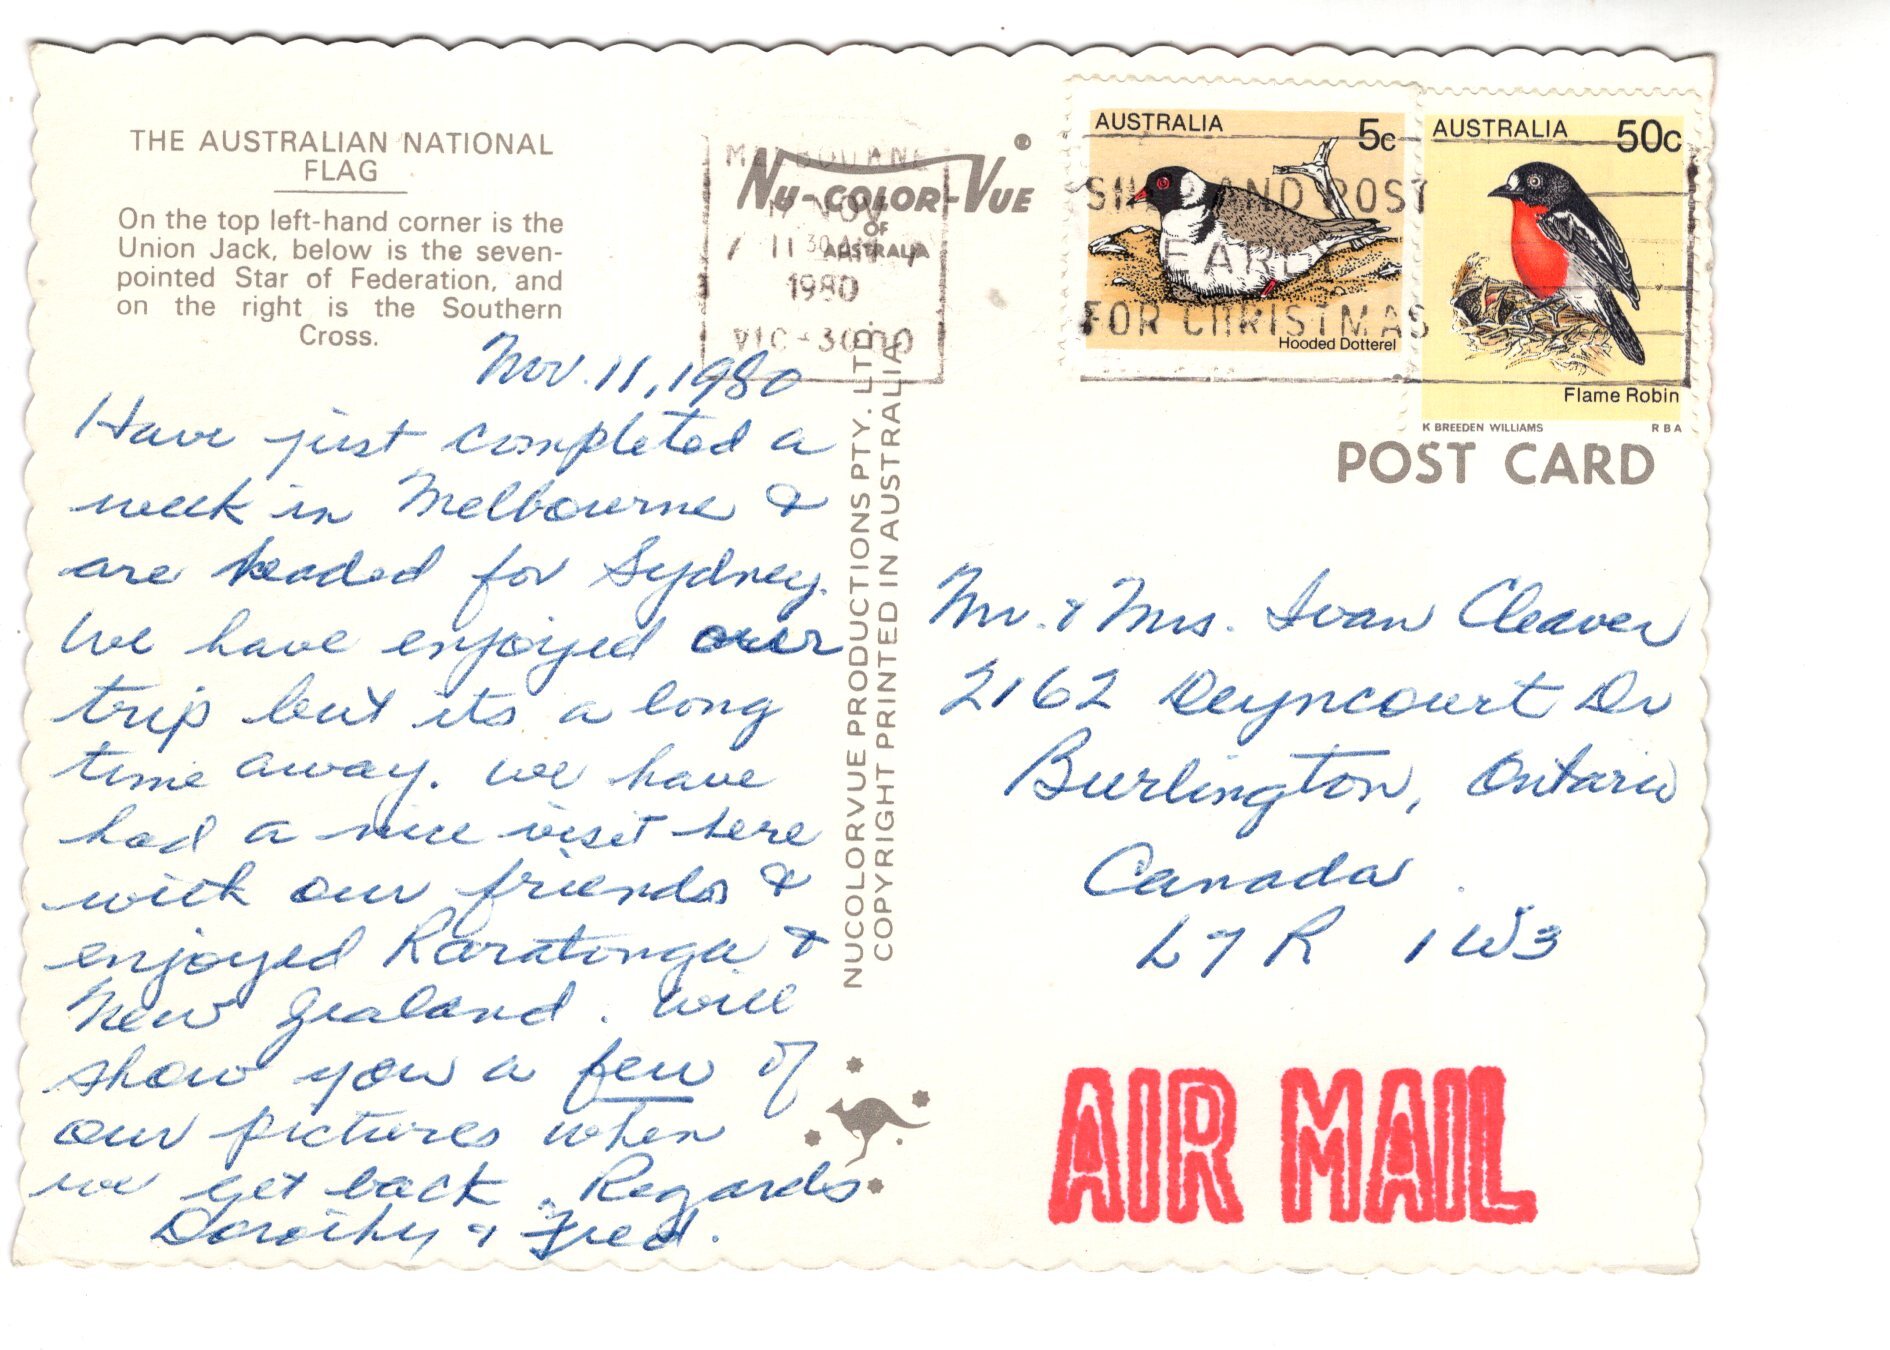 THE AUSTRALIAN NATIONAL
FLAG
On the top left-hand corner is the
Union Jack, below is the seven-
pointed Star of Federation, and
on the right is the Southern
Cross.
Nov. 11, 1980
Have just completed a
week in Melbourne &
are headed for Sydney.
We have enjoyed our
trip but its a long
time away. We have
had a nice visit here
with our friends &
enjoyed Raratonga &
New Zealand. Will
show you a few of
our pictures when
we get back. Regards
Dorothy & Fred.
NU-COLOR-VUE ®
OF
AUSTRALIA
MELBOURNE
NOV
11 30 AM
1980
VIC-3000
NUCOLORVUE PRODUCTIONS PTY. LTD.
COPYRIGHT PRINTED IN AUSTRALIA
AUSTRALIA 5c
Hooded Dotterel
AND POST
EARLY
FOR CHRISTMAS
AUSTRALIA 50c
Flame Robin
K BREEDEN WILLIAMS RBA
POST CARD
Mr. & Mrs. Ivan Cleaver
2162 Deyncourt Dr
Burlington, Ontario
Canada.
L7R 1W3
AIR MAIL